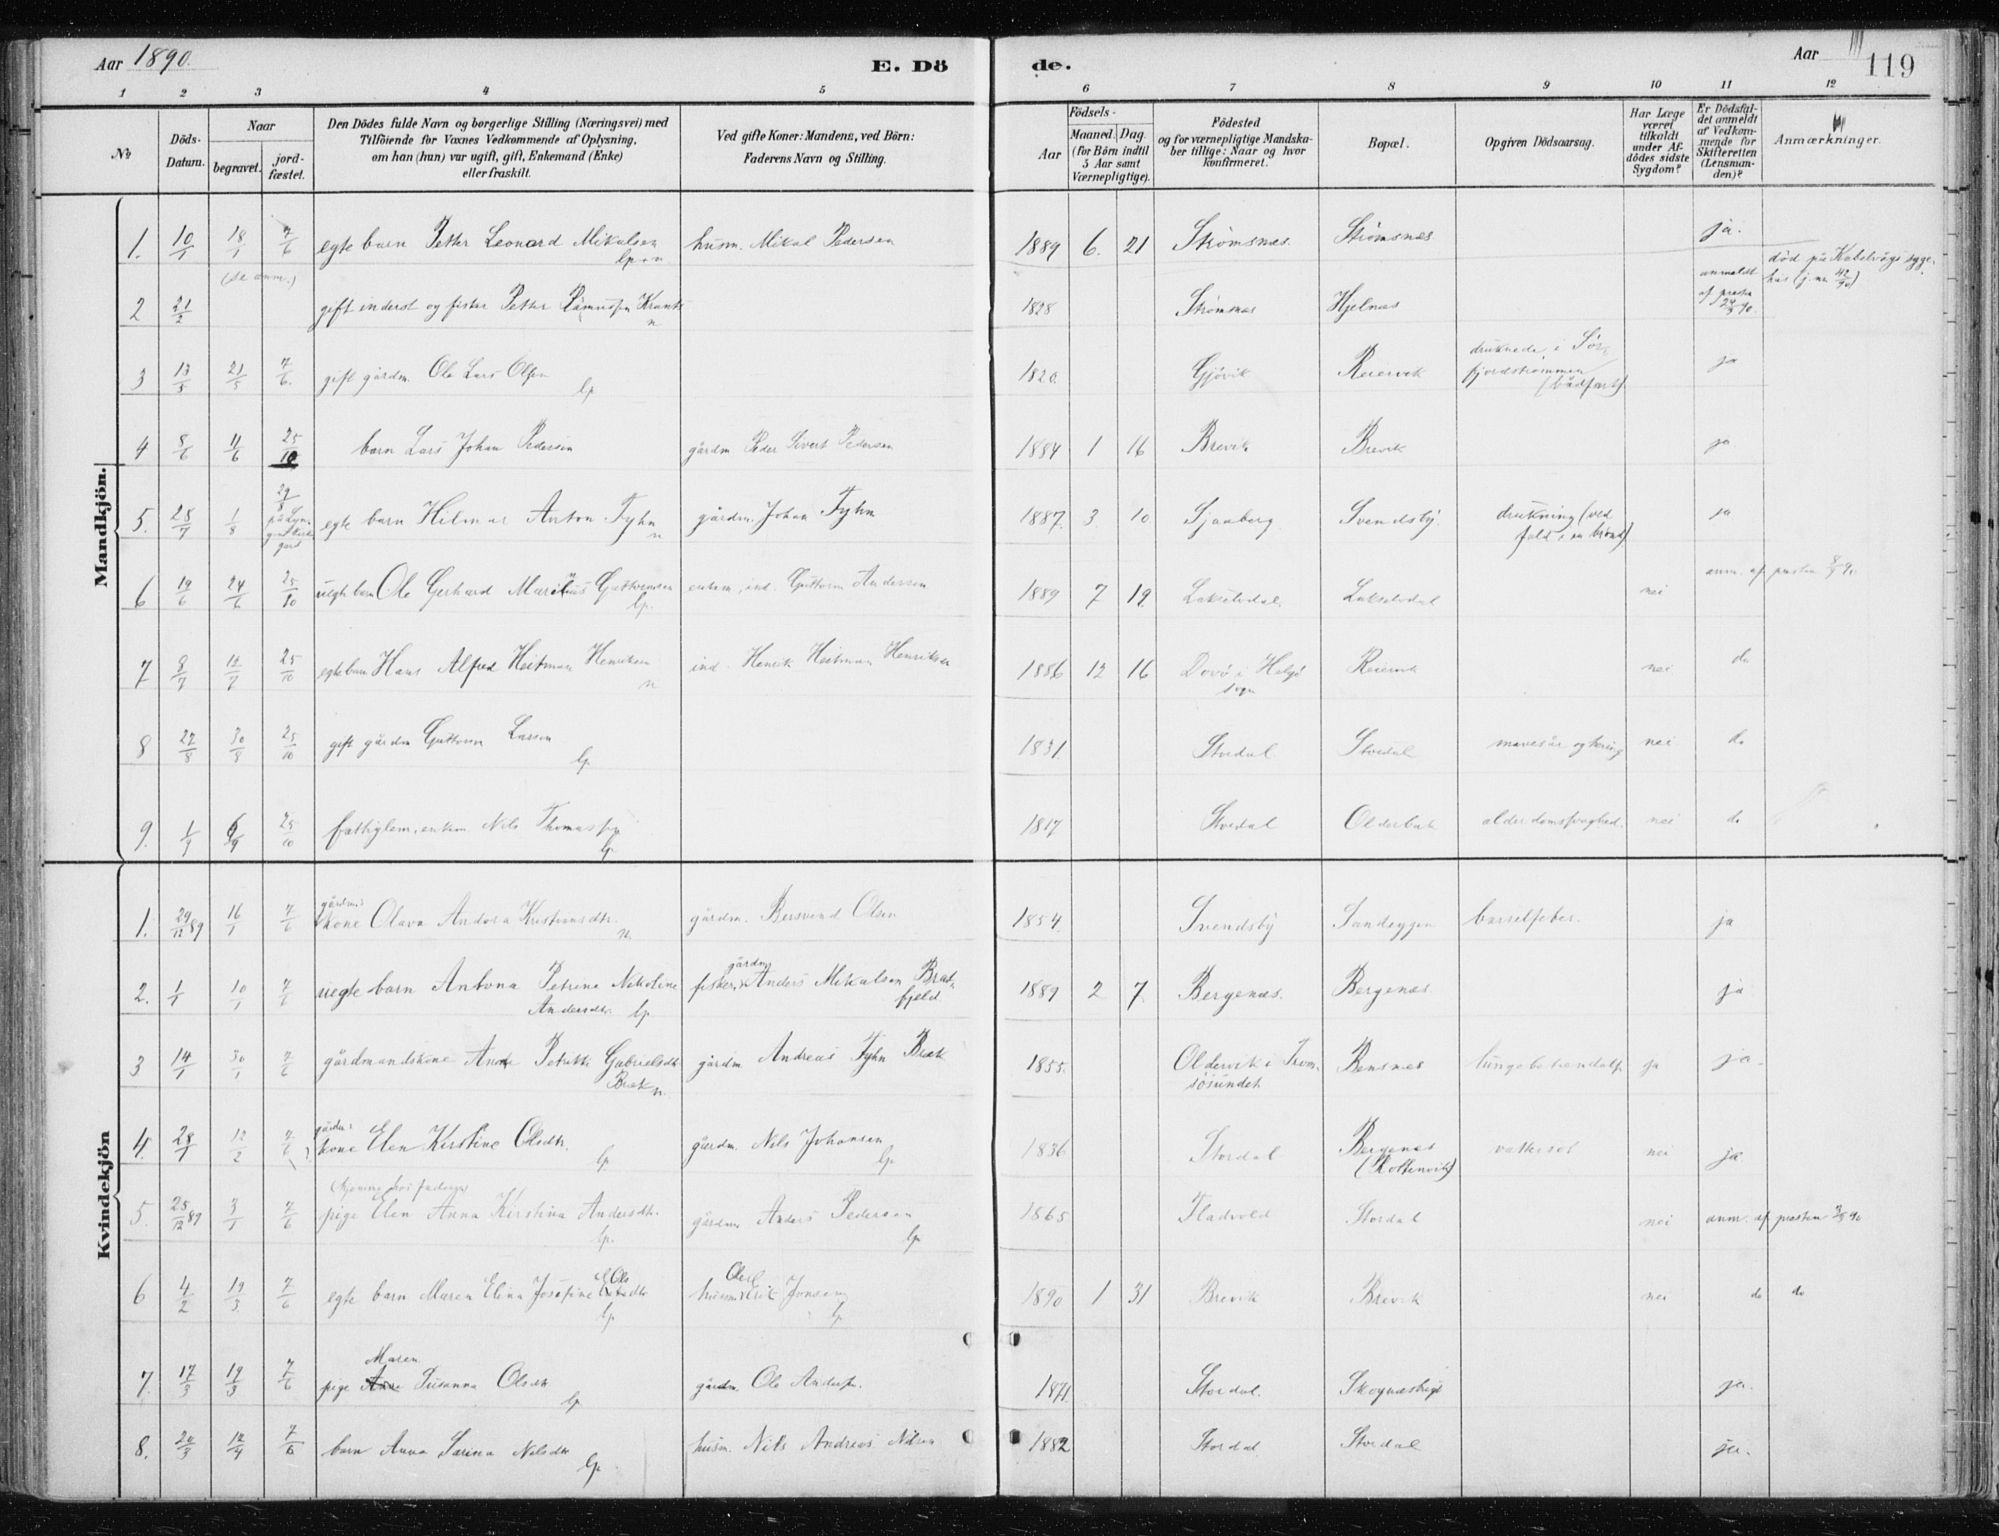 Aar 1890.
E. Dö
de.
Aar
119
1 2 3 4 5 6 7 8 9 10 11 12
No
Döds-Datum.
Naar
begravet.
jord-fæstet.
Den Dödes fulde Navn og borgerlige Stilling (Næringsvei) med
Tilföiende for Voxnes Vedkommende af Oplysning,
om han (hun) var ugift, gift, Enkemand (Enke)
eller fraskilt.
Ved gifte Koner: Mandens, ved Börn:
Faderens Navn og Stilling.
Födsels-
Aar
Maaned.
Dag.
(for Börn indtil
5 Aar samt
Værnepligtige).
Födested
og for værnepligtige Mandska-
ber tillige: Naar og hvor
konfirmeret.
Bopæl.
Opgiven Dödsaarsag.
Har Læge
været
tilkaldt
under Af-
dödes sidste
Sygdom?
Er Dödsfal-
det anmeldt
af Vedkom-
mende for
Skifteretten
(Lensman-
den)?
Anmærkninger.
Mandkjön.
1. 10/1 18/1 7/6 egte barn Petter Leonard Mikalsen husm. Mikal Pedersen 1889 6. 21 Strømsnæs. Strømsnæs. ja.
(se anm.)
2 21/2 gift inderst og fisker Petter Rasmussen n 1828 Strømsnæs Hjelnæs anmeldt af præsten død på Kabelvågs syge-
hus
3 13/5 21/5 7/6. gift gårdm. Ole Lars Olsen lp 1820. Gjövik Reiervik druknede i Sör-
fjordstrømmen
(bådfart). ja
4 8/6 11/6 25/10 barn Lars Johan Pedersen gårdm Peder Sivert Pedersen 1884 1 16 Brevik Brevik ja
5. 28/7 1/8 29/8 egte barn Hilmar Anton Fyhn n gårdm. Johan Fyhn 1887. 3. 10. Svendsby. drukning (ved
fald i en brønd) ja
6 19/6 24/6 25/10 uegte barn Ole Gerhard Marinius Guttormsen lp. enkem. ind. Guttorm Andersen 1889 7 19. Lakselvdal. Lakselvdal nei anm. af præsten
7 8/7 25/10 egte barn Hans Alfred Heitman Henriksen n ind. Henrik Heitman Henriksen 1886 12 16 i Helgö
sogn Reiervik nei do
8 27/8 30/8 25/10 gift gårdm Guttorm Larsen lp 1831. Stordal Stordal mavesår og tæring nei do
9. 1/9 6/9 25/10 fattiglem, enkem Nils Thomassen lp 1817 Stordal Olderbak alderdomssvaghed. nei do
Kvindekjön
1. 29/12 89 16/1 7/6 gårdm:
kone Olava Andora Kristiansdtr. n. gårdm. Bersvend Olsen 1854. Svendsby Sandeggen barselfeber. ja
2. 1/1 10/1 7/6 uegte barn Antona Petrina Nikoline
Andersdtr. lp. fisker, gårdm Anders Mikalsen Brad-
fjeld 1889 2 7. Bergenæs. Bergenæs. ja
3 14/1 30/1 7/6 gårdmandskone Anne Petrikke Gabrielsdtr
Bræk n. gårdm Andreas Fyhn Bræk 1855. Oldervik i Trom-
sösundet Bensnæs ja ja.
4. 28/1 12/2 7/6 gårdm:
kone Elen Kirstine Olsdtr. lp. gårdm. Nils Johansen lp. 1836 Stordal Bergenæs
(Kottenvik) vattersot nei ja
5. 25/12 89 3/1 7/6 (hjemme hos faderen)
pige Elen Anna Kirstina Andersdtr. lp. gårdm Anders Pedersen lp. 1865 Fladvold Stordal nei anm. af præsten
6 4/2 19/3 7/6 egte barn Maren Elina Josefine Olsdtr lp. husm Ole Erik Jonsen lp 1890 1 31 Brevik Brevik nei do do
7. 17/3 19/3 7/6 Maren
pige Susanna Olsdtr lp gårdm. Ole Anderss. 1871. Stordal. ja.
8. 20/3 12/4 7/6 barn Anna Sarina Nilsdtr lp. husm. Nils Andreas Nilsen 1882 Stordal Stordal ja.